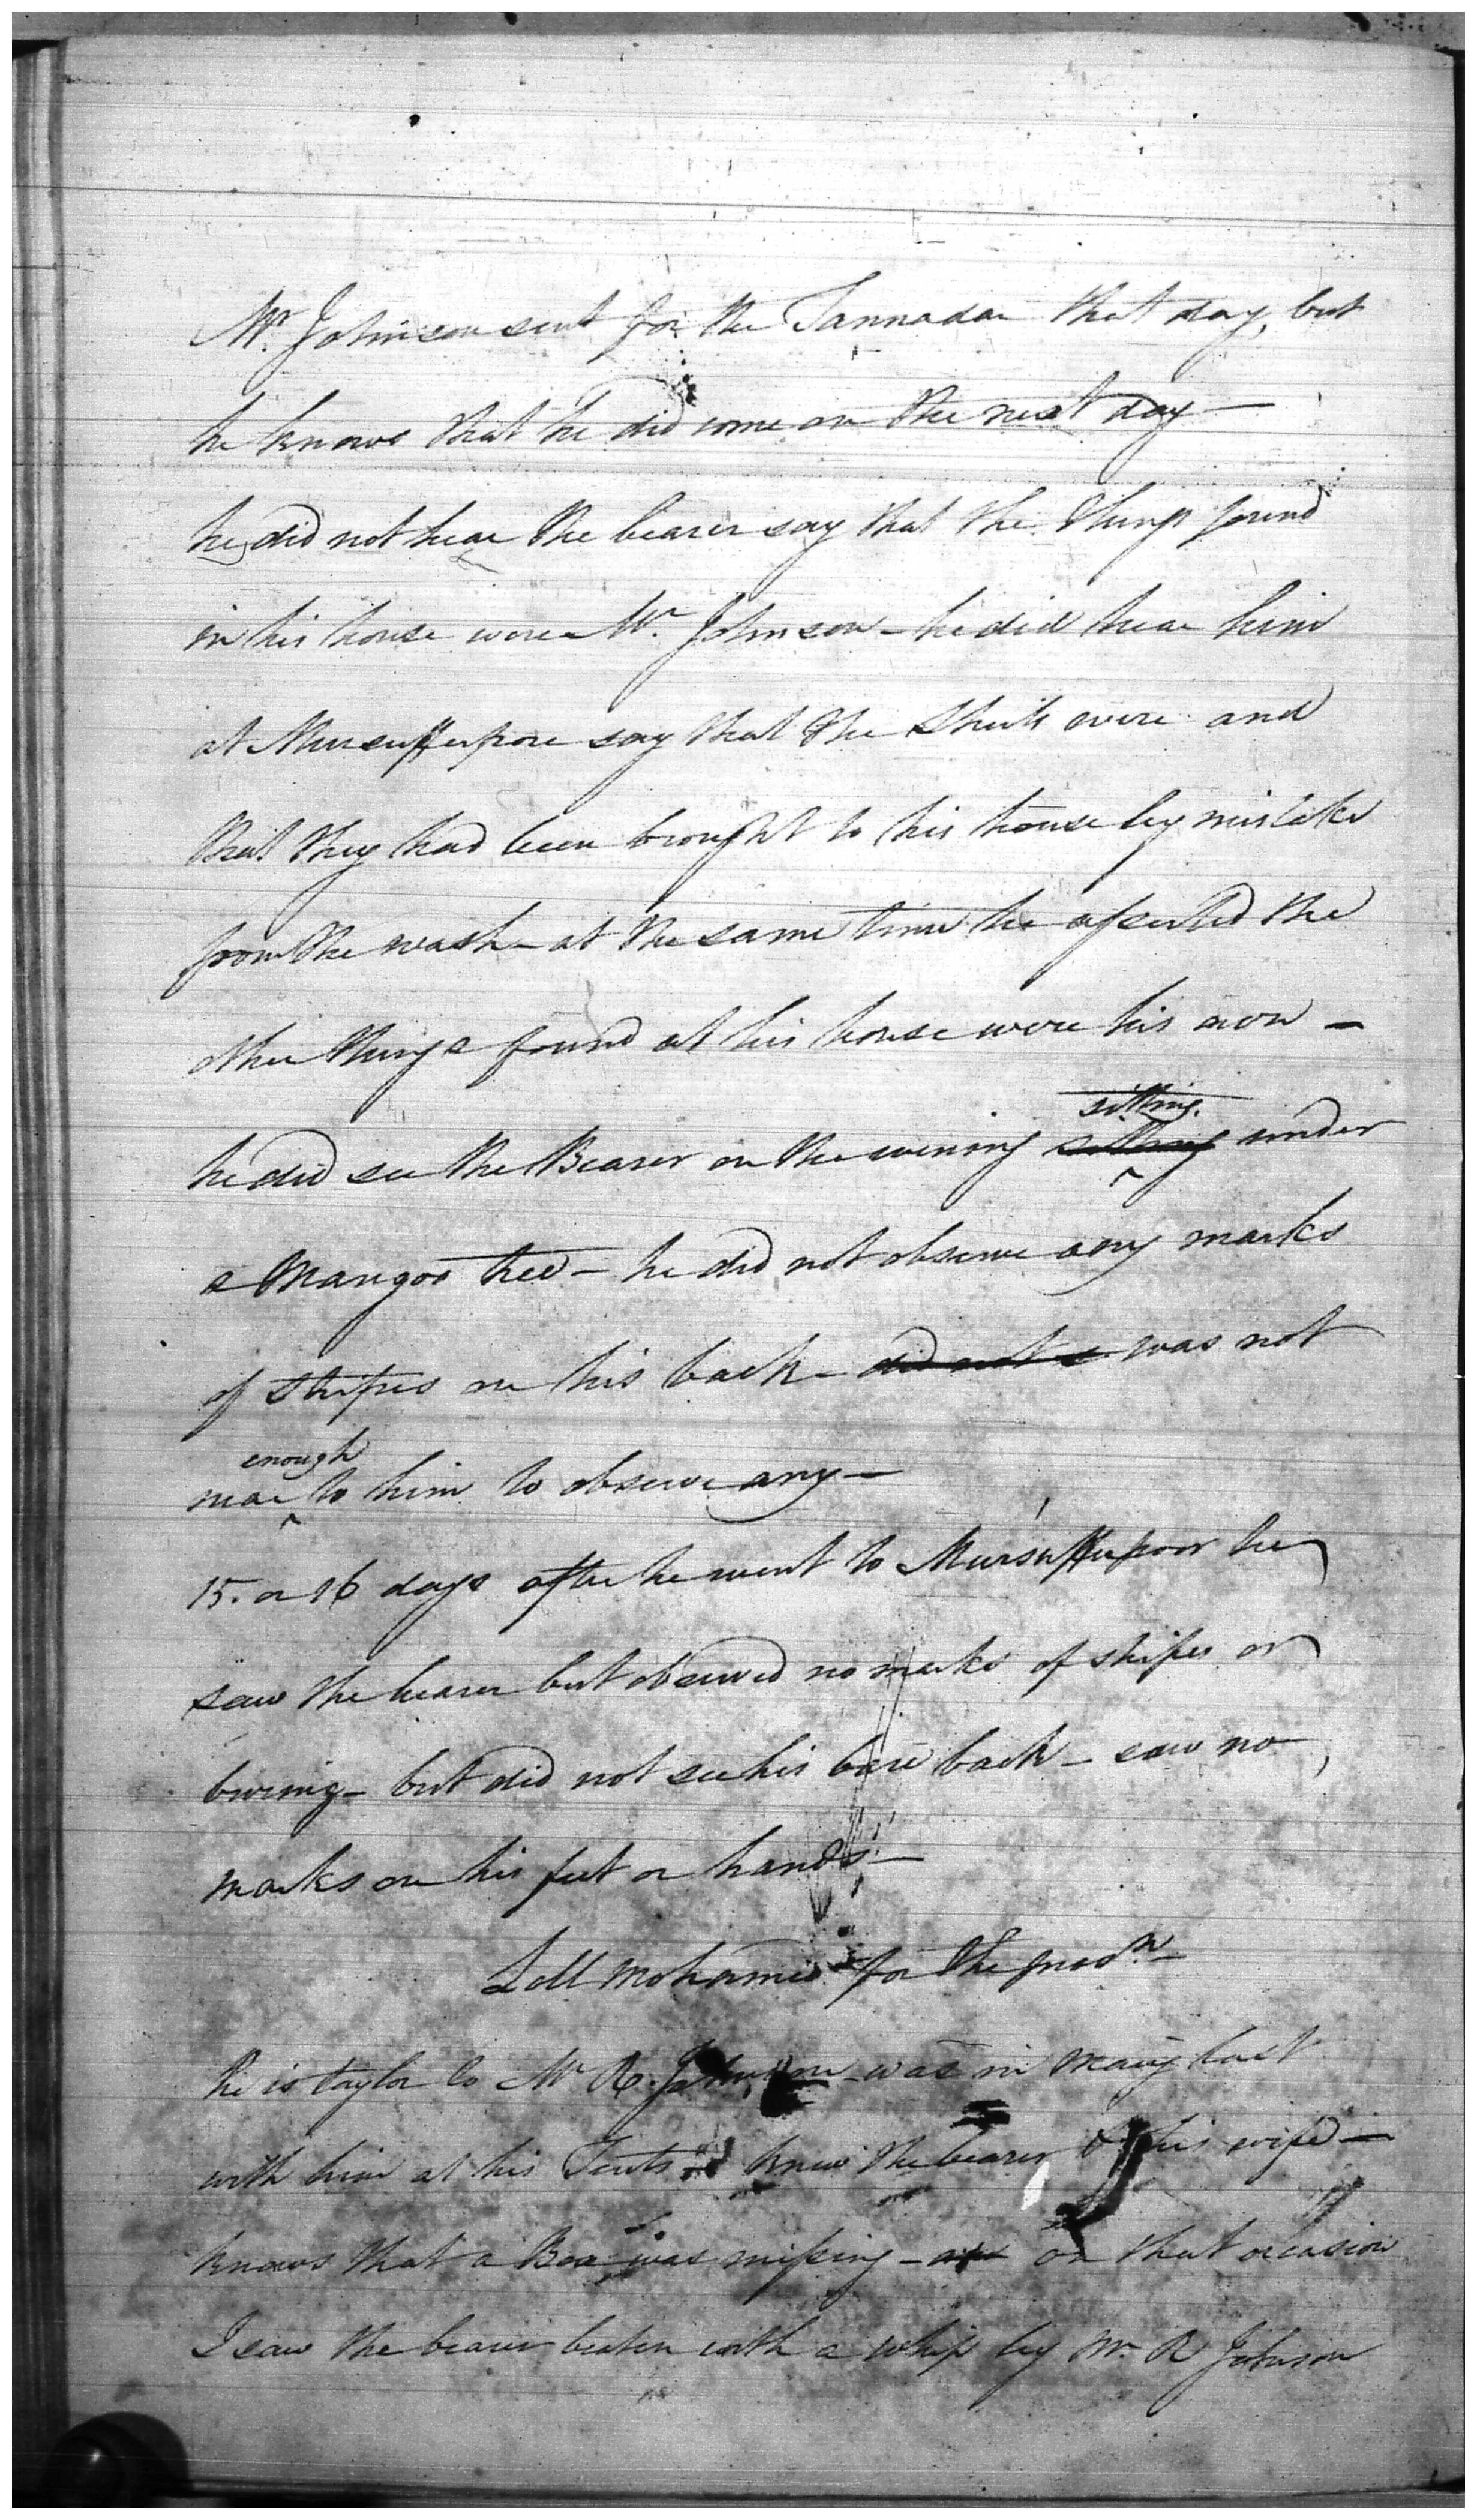 Mr. Johnson sent for the Tannadar that day, but
he knows that he did come on the next day —
he did not hear the bearer say that the things found
in his house were Mr. Johnson — he did hear him
at Mursufferpore say that the Sheets were and
that they had been brought to his house by mistake
from the wash — at the same time he asserted the
other things found at his house were his own —
sitting
he did see the Bearer on the evening sitting under
a Mangoo tree — he did not observe any marks
of stripes on his back — did not s was not
enough
near to him to observe any —
15. or 16 days after he went to Mursufferpoor he
saw the bearer but observed no marks of stripes or
burning — but did not see his bare back — saw no
marks on his feet or hands —
Loll Mohamed for the prosn.
he is taylor to Mr R. Johnson was in May last
with him at his Tents — knew the bearer & his wife —
knows that a Box was missing — on that occasion
I saw the bearer beaten with a whip by Mr. R Johnson